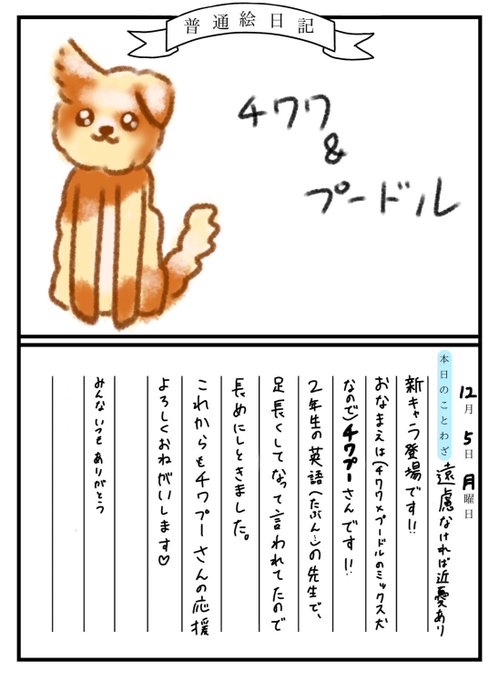 普通絵日記
チワワ
&
プードル
12月5日月曜日
本日のことわざ 遠慮なければ近憂あり
新キャラ登場です!!
おなまえは(チワワ×プードルのミックス犬
なので)チワプーさんです!!
2年生の英語(たぶん…)の先生で、
足長くしてなって言われてたので
長めにしときました。
これからもチワプーさんの応援
よろしくおねがいします♡
みんないつもありがとう